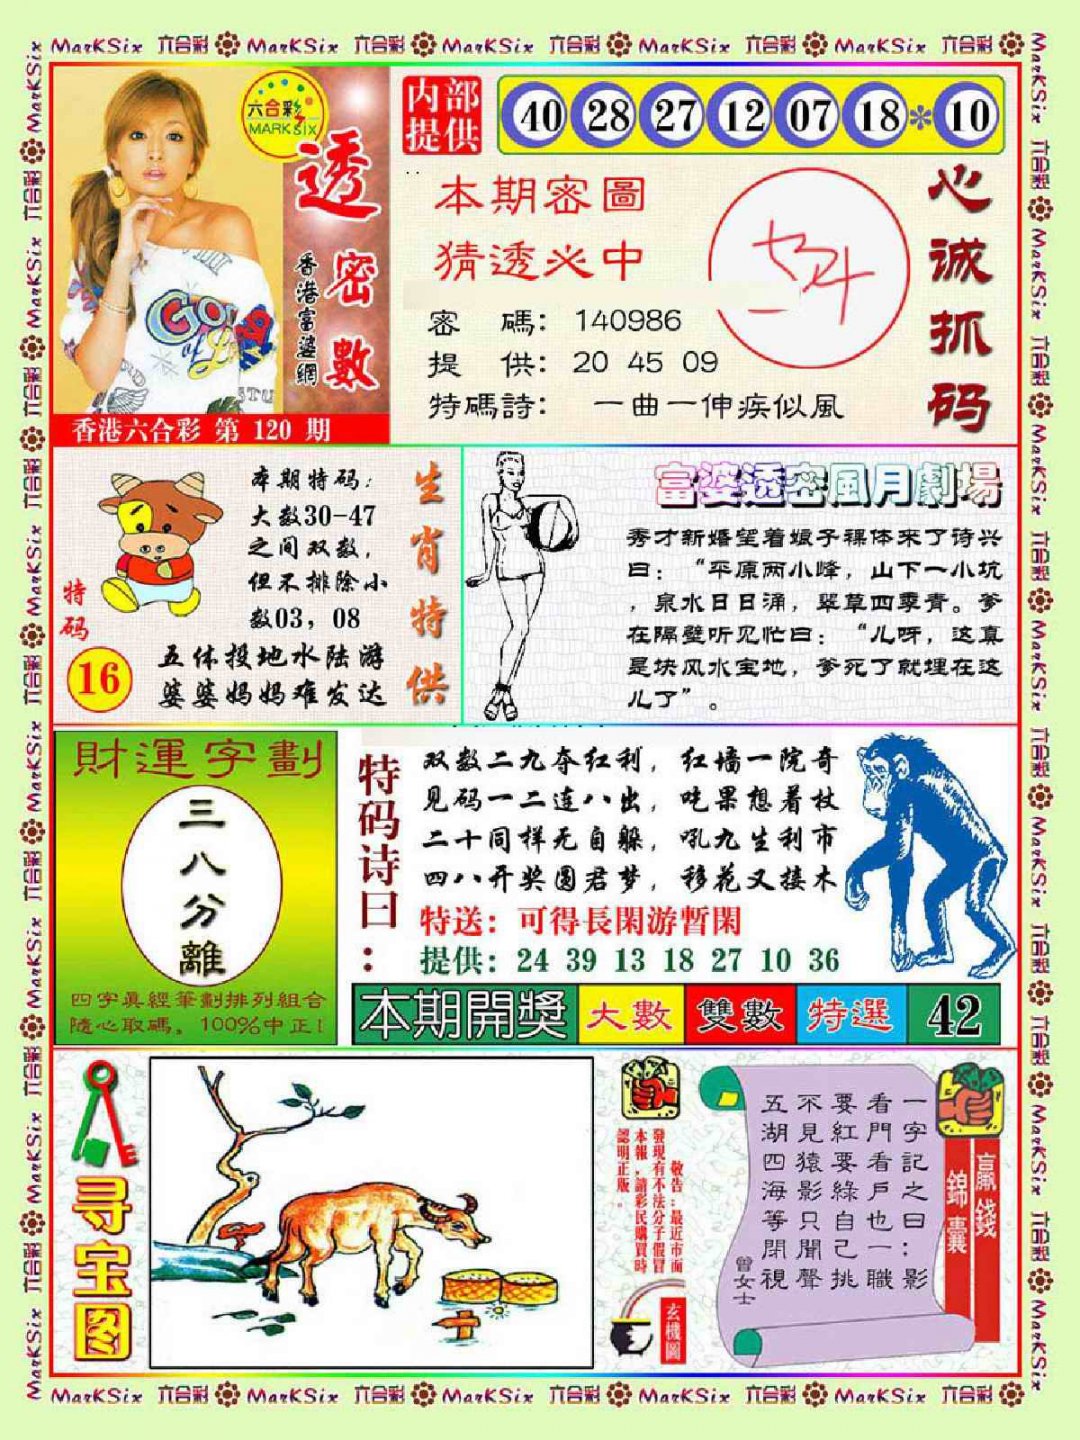 MarKSix 六合彩 MarKSix 六合彩 MarKSix 六合彩 MarKSix 六合彩 MarKSix 六合彩
六合彩
MARK SIX
透密數
香港富婆網
香港六合彩 第 120 期
内部
提供
40 28 27 12 07 18 * 10
本期密圖
猜透必中
密 碼: 140986
提 供: 20 45 09
特碼詩: 一曲一伸疾似風
心诚抓码
本期特码:
大数30-47
之间双数,
但不排除小
数03, 08
特码
16
五体投地水陆游
婆婆妈妈难发达
生肖特供
富婆透密風月劇場
秀才新婚望着娘子裸体来了诗兴
曰: “平原两小峰, 山下一小坑
, 泉水日日涌, 翠草四季青。爹
在隔壁听见忙曰: “儿呀, 这真
是块风水宝地, 爹死了就埋在这
儿了”。
財運字劃
三八分離
四字真經筆劃排列組合
隨心取碼。100%中正!
特码诗曰:
双数二九夺红利, 红墙一院奇
见码一二连八出, 吃果想着杖
二十同样无自躲, 吼九生利市
四八开奖圆君梦, 移花又接木
特送: 可得長閑游暫閑
提供: 24 39 13 18 27 10 36
本期開獎 大數 雙數 特選 42
寻宝图
敬告:最近市面
發現有不法分子假冒
本報,請彩民購買時
認明正版。
玄機圖
贏錢
錦囊
一字記之曰:影
看門看戶也一職
要紅要綠自己挑
不見猿影只聞聲
五湖四海等閑視
曾女士
MarKSix 六合彩 MarKSix 六合彩 MarKSix 六合彩 MarKSix 六合彩 MarKSix 六合彩